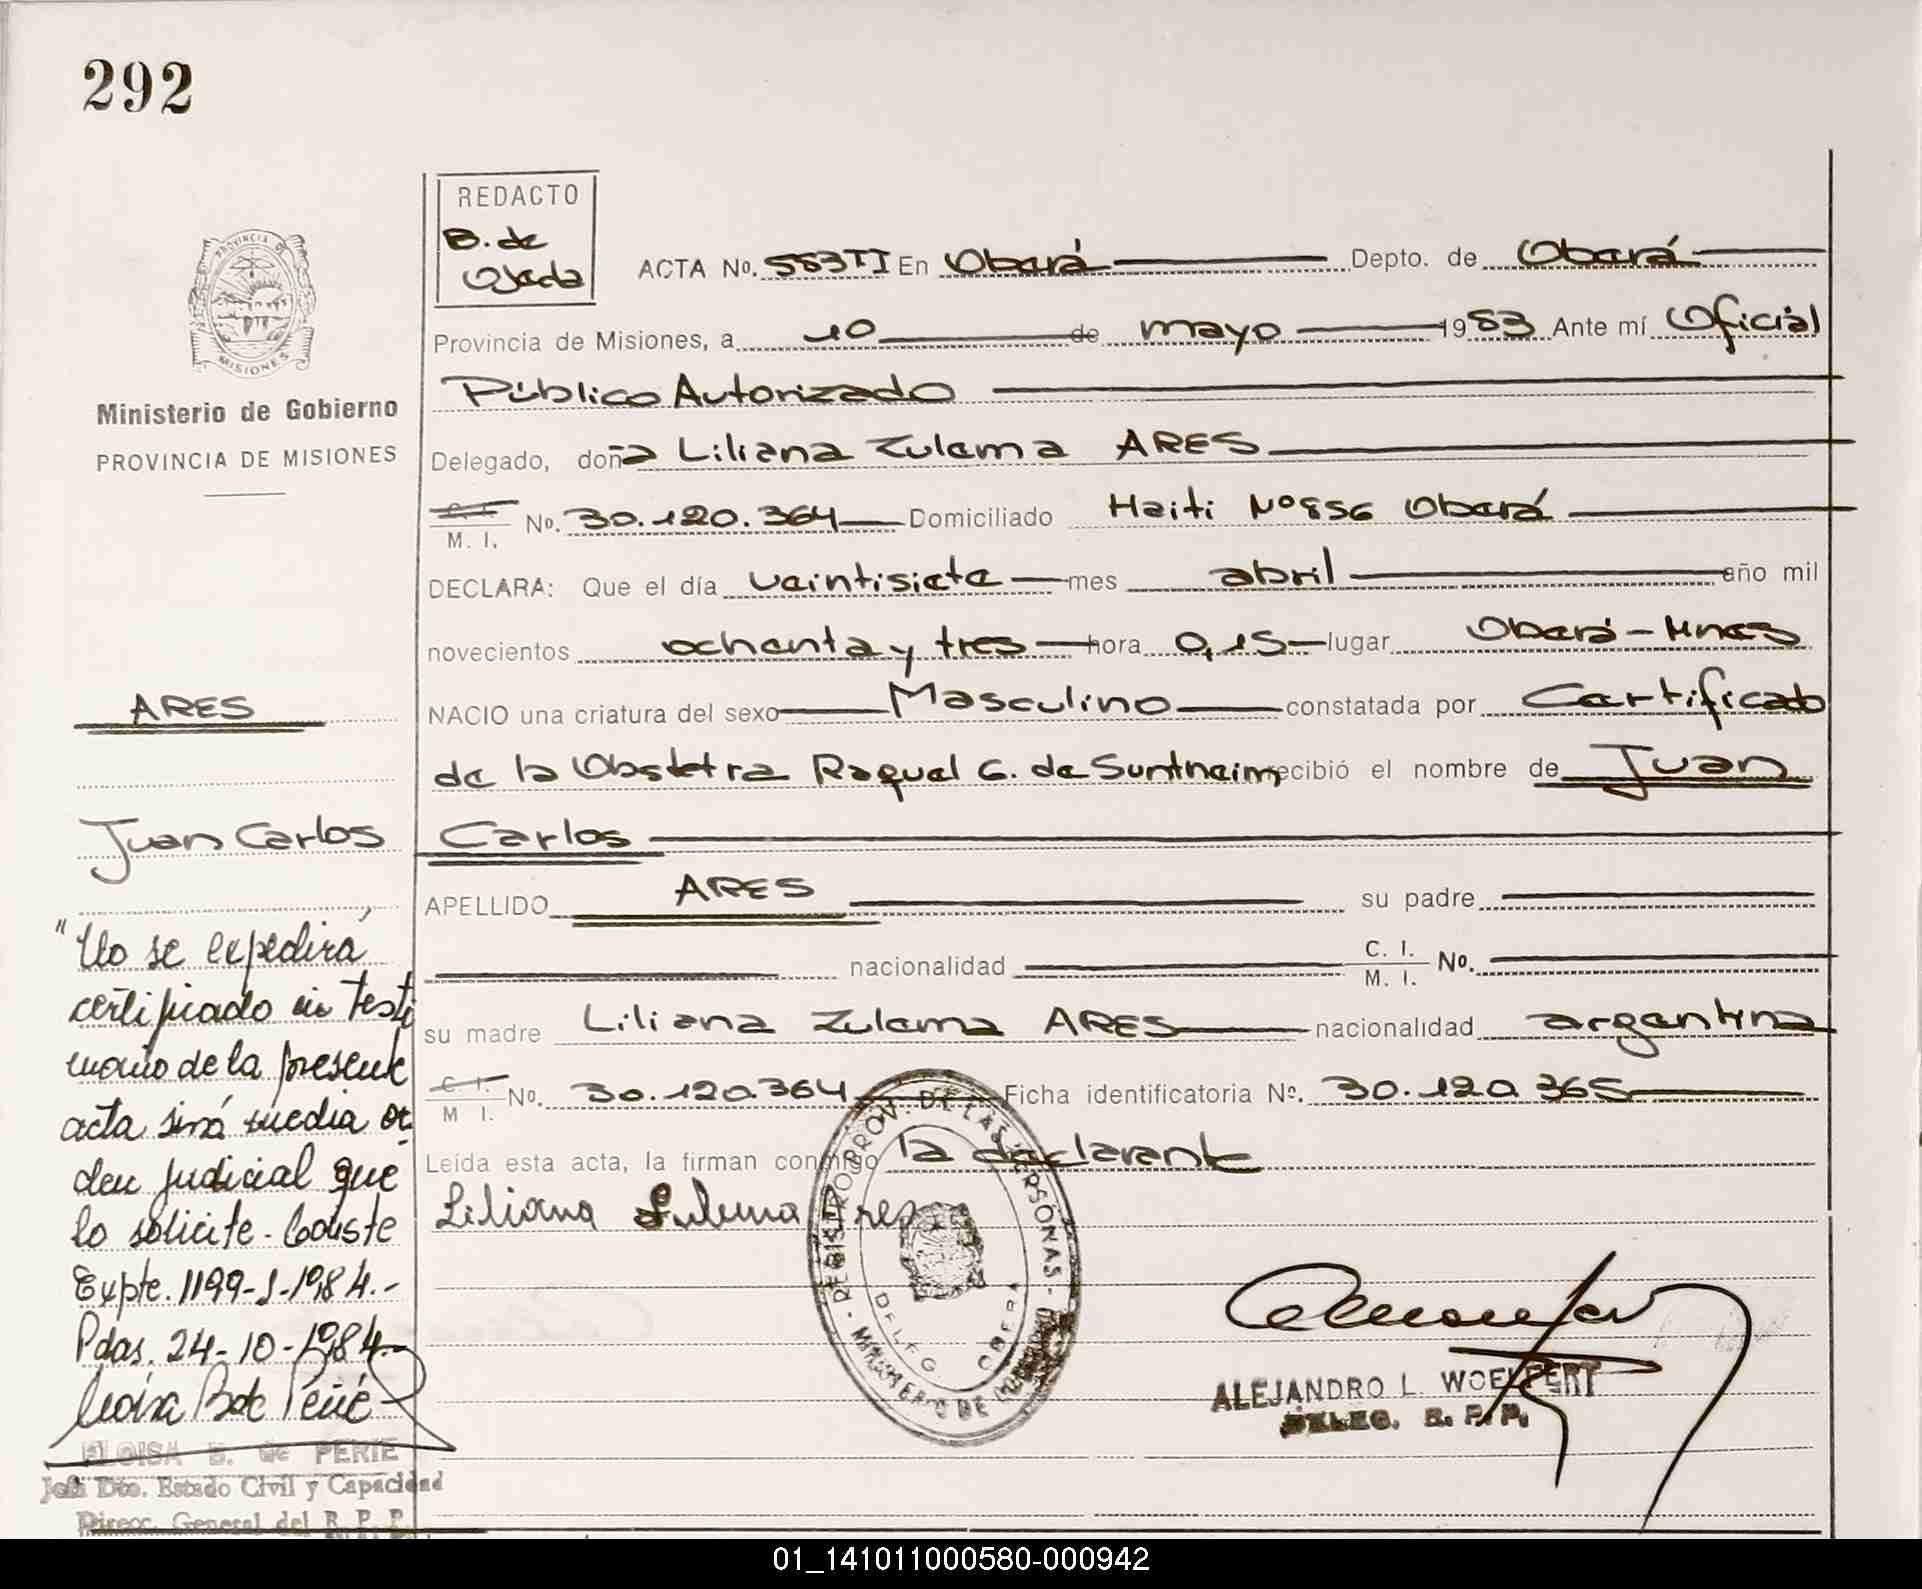 292
REDACTO
B. de
Ojeda
ACTA No. 553TI En Oberá Depto. de Oberá
Provincia de Misiones, a 10 de mayo 1983 Ante mí Oficial
Público Autorizado
Delegado, doña Liliana Zulema ARES
C. I. M. I. No. 30.120.364 Domiciliado Haiti Nº 856 Oberá
DECLARA: Que el día veintisiete mes abril año mil
novecientos ochenta y tres hora 0,15 lugar Oberá - Mnes
NACIO una criatura del sexo Masculino constatada por Certificado
de la Obstetra Raquel G. de recibió el nombre de Juan
Carlos
APELLIDO ARES su padre
nacionalidad C. I. M. I. No.
su madre Liliana Zulema ARES nacionalidad argentina
C. I. M. I. No. 30.120.364 Ficha identificatoria No. 30.120.365
Leída esta acta, la firman conmigo la declarante
Liliana Zulema Ares
REGISTRO PROV. DE LAS PERSONAS - MINISTERIO DE
DELEG. OBERA
ALEJANDRO L. WOELFERT
DELEG. R. P. P.
PROVINCIA DE
MISIONES
Ministerio de Gobierno
PROVINCIA DE MISIONES
ARES
Juan Carlos
"No se expedirá
certificado ni testi
monio de la presente
acta sinó media or
den judicial que
lo solicite. Conste
Expte. 1199-J-1984.-
Pdas. 24-10-1984
ELOISA B. de PERIE
Jefa Dto. Estado Civil y Capacidad
Direcc. General del R. P. P.
01_141011000580-000942